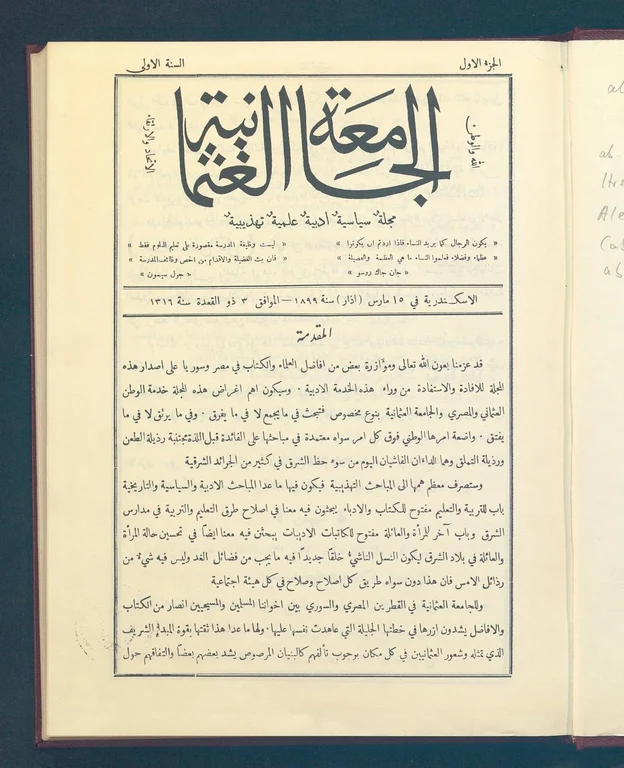 الجزء الاول
السنة الاولى
الجامعة العثمانية
الله والوطن
الاتحاد والارتقاء
مجلة سياسية ادبية علمية تهذيبية
« يكون الرجال كما يريد النساء فاذا اردتم ان يكونوا »
« عظماء وفضلاء فعلموا النساء ما هي العظمة والفضيلة »
« جان جاك روسو »
« ليست وظيفة المدرسة مقصورة على تعليم العلوم فقط »
« فان بث الفضيلة والاقدام من اخص وظائف المدرسة »
« جول سيمون »
الاسكندرية في ١٥ مارس (اذار) سنة ١٨٩٩ — الموافق ٣ ذو القعدة سنة ١٣١٦
المقدمة
قد عزمنا بعون الله تعالى ومؤازرة بعض من افاضل العلماء والكتاب في مصر وسوريا على اصدار هذه
المجلة للافادة والاستفادة من وراء هذه الخدمة الادبية . وسيكون اهم اغراض هذه المجلة خدمة الوطن
العثماني والمصري والجامعة العثمانية بنوع مخصوص فتبحث في ما يجمع لا في ما يفرق . وفي ما يرتق لا في ما
يفتق . واضعة امرها الوطني فوق كل امر سواه معتمدة في مباحثها على الفائدة قبل اللذة مجتنبة رذيلة الطعن
ورذيلة التملق وهما الداءان الفاشيان اليوم من سوء حظ الشرق في كثير من الجرائد الشرقية
وستصرف معظم همها الى المباحث التهذيبية فيكون فيها ما عدا المباحث الادبية والسياسية والتاريخية
باب للتربية والتعليم مفتوح للكتاب والادباء يبحثون فيه معنا في اصلاح طرق التعليم والتربية في مدارس
الشرق وباب آخر للمرأة والعائلة مفتوح للكاتبات الاديبات يبحثن فيه معنا ايضاً في تحسين حالة المرأة
والعائلة في بلاد الشرق ليكون النسل الناشئ خلقاً جديداً فيه ما يجب من فضائل الغد وليس فيه شيء من
رذائل الامس فان هذا دون سواه طريق كل اصلاح وصلاح في كل هيئة اجتماعية
وللجامعة العثمانية في القطرين المصري والسوري بين اخواننا المسلمين والمسيحيين انصار من الكتاب
والافاضل يشدون ازرها في خطتها الجليلة التي عاهدت نفسها عليها . ولها ما عدا هذا ثقتها بقوة المبدإ الشريف
الذي تمثله وشعور العثمانيين في كل مكان بوجوب تألفهم كالبنيان المرصوص يشد بعضهم بعضاً والتفافهم حول